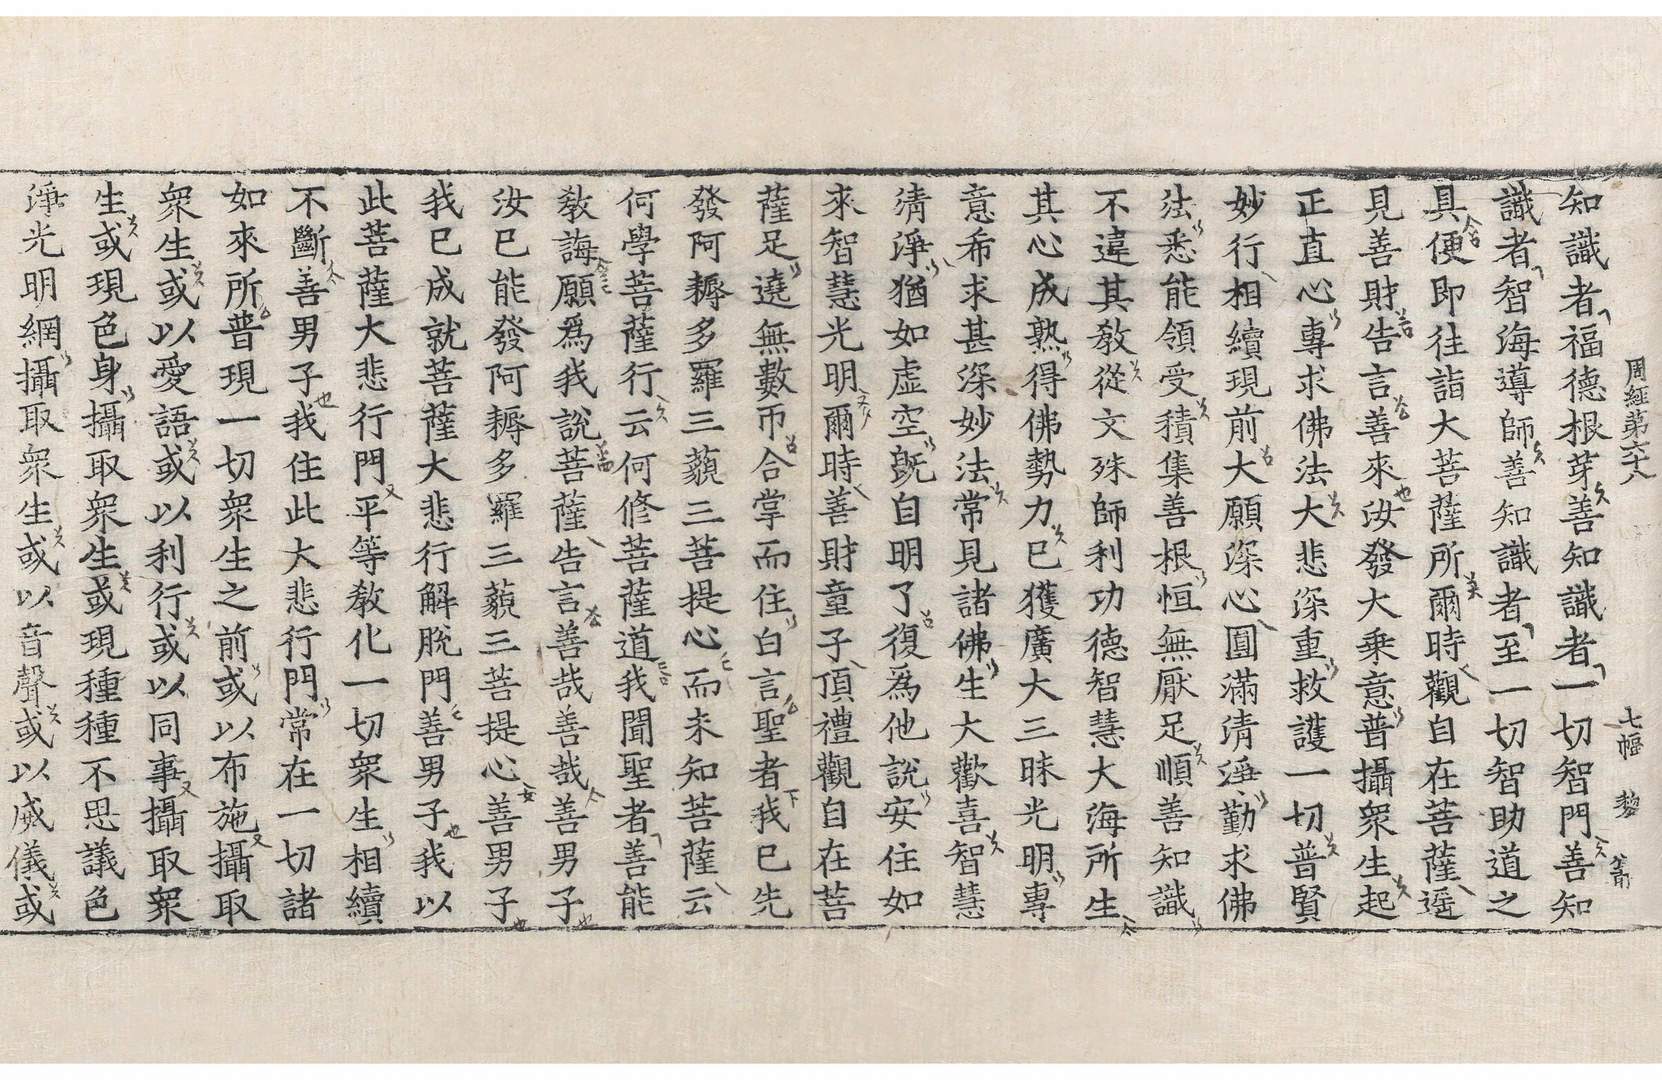 周經第六十八 七幅 黎
知識者福德根芽善知識者一切智門善知
識者智海導師善知識者至一切智助道之
具便即往詣大菩薩所爾時觀自在菩薩遥
見善財告言善來汝發大乘意普攝衆生起
正直心專求佛法大悲深重救護一切普賢
妙行相續現前大願深心圓滿清淨勤求佛
法悉能領受積集善根恒無厭足順善知識
不違其教從文殊師利功德智慧大海所生
其心成熟得佛勢力已獲廣大三昧光明專
意希求甚深妙法常見諸佛生大歡喜智慧
清淨猶如虛空既自明了復爲他說安住如
來智慧光明爾時善財童子頂禮觀自在菩
薩足遶無數帀合掌而住白言聖者我已先
發阿耨多羅三藐三菩提心而未知菩薩云
何學菩薩行云何修菩薩道我聞聖者善能
教誨願爲我說菩薩告言善哉善哉善男子
汝已能發阿耨多羅三藐三菩提心善男子
我已成就菩薩大悲行解脫門善男子我以
此菩薩大悲行門平等教化一切衆生相續
不斷善男子我住此大悲行門常在一切諸
如來所普現一切衆生之前或以布施攝取
衆生或以愛語或以利行或以同事攝取衆
生或現色身攝取衆生或現種種不思議色
淨光明網攝取衆生或以音聲或以威儀或